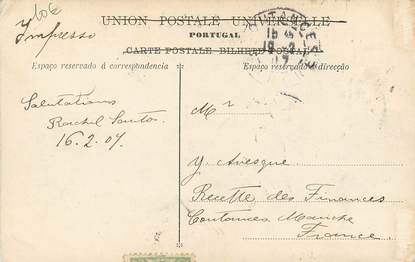 60€
Impresso
UNION POSTALE UNIVERSELLE
PORTUGAL
CARTE POSTALE BILHETE POSTAL
Espaço reservado á correspondencia
Espaço reservado á direcção
Salutations
Rachel Santos
16.2.07.
Mr
Y. Avesque
Recette des Finances
Coutances Manche
France